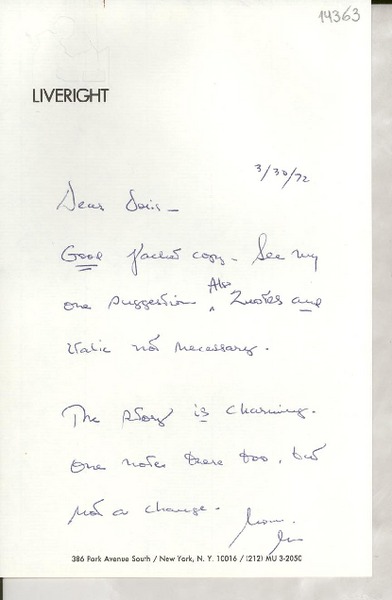 14363
LIVERIGHT
3/30/72
Dear Doris –
Good jacket copy – See my
one suggestion. Also Quotes and
italic not necessary.
The story is charming.
One note there too, but
not a change.
386 Park Avenue South / New York, N. Y. 10016 / (212) MU 3-2050